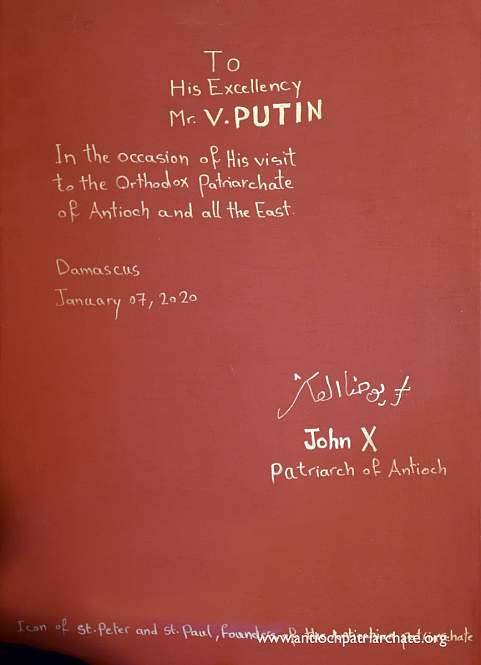 To
His Excellency
Mr. V. PUTIN
In the occasion of His visit
to the Orthodox Patriarchate
of Antioch and all the East.
Damascus
January 07, 2020
John X
Patriarch of Antioch
Icon of St. Peter and St. Paul, Founders of the
www.antiochpatriarchate.org